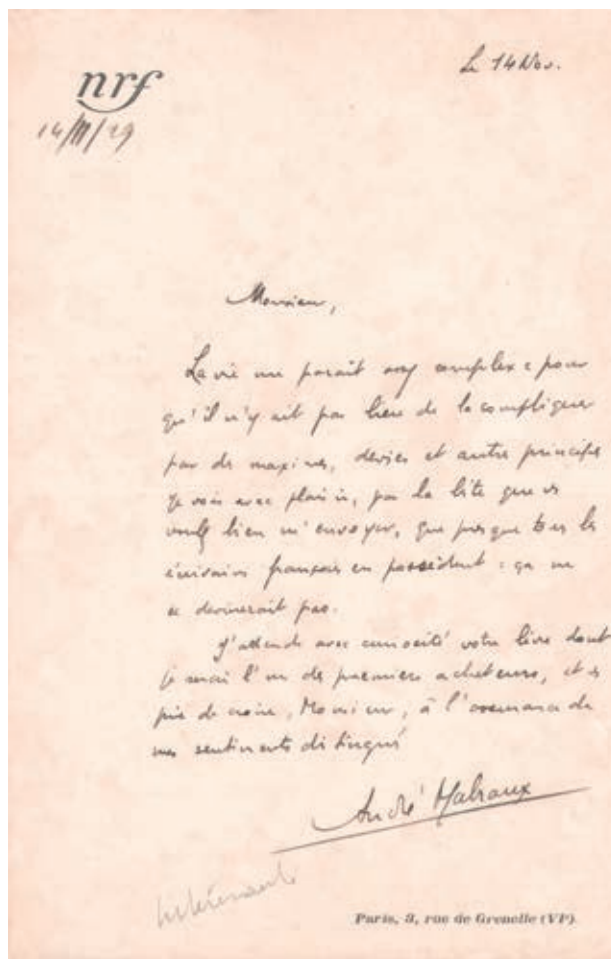 nrf
Le 14 Nov.
14/11/29
Monsieur,
La vie me paraît assez complexe pour
qu'il n'y ait pas lieu de la compliquer
par des maximes, devises et autres principes
Je vois avec plaisir, par la liste que vs
voulez bien m'envoyer, que presque tous les
écrivains français en possèdent : ça ne
se devinerait pas.
J'attends avec curiosité votre livre dont
je serai l'un des premiers acheteurs, et vs
prie de croire, Monsieur, à l'assurance de
mes sentiments distingués
André Malraux
Paris, 3, rue de Grenelle (VIe)